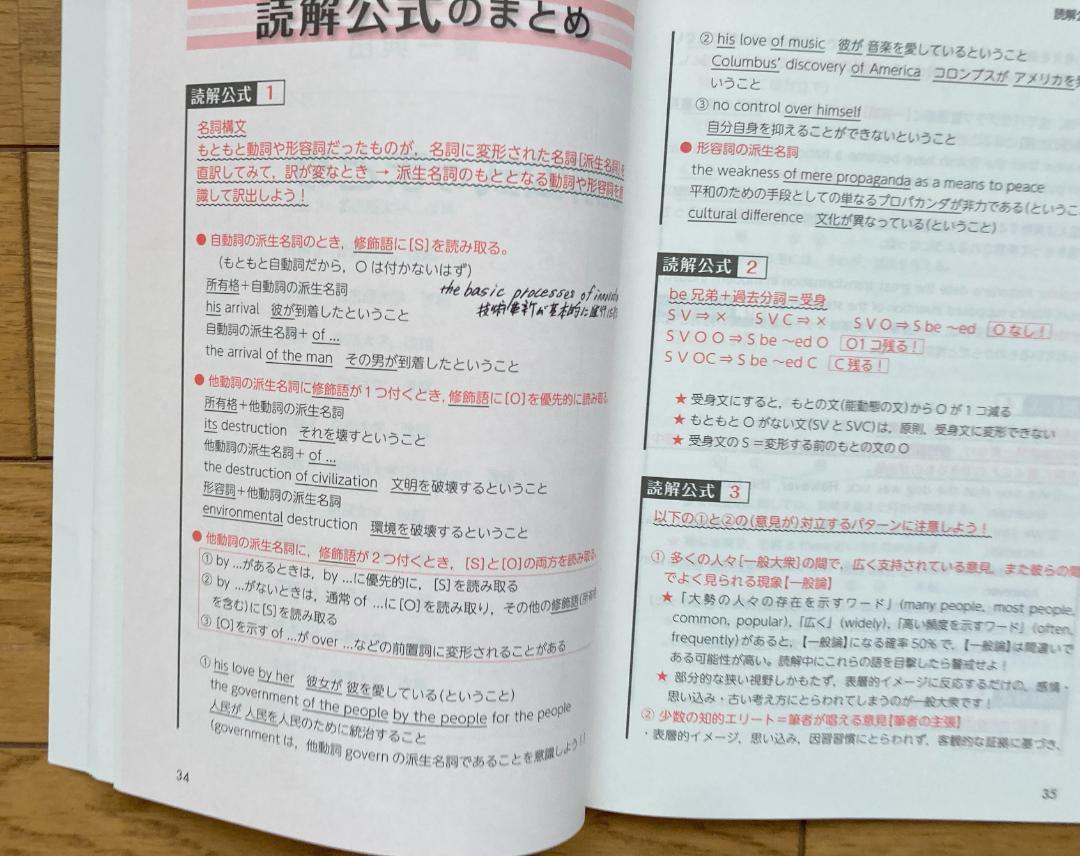 読解公式のまとめ
読解公式 1
名詞構文
もともと動詞や形容詞だったものが，名詞に変形された名詞［派生名詞］を
直訳してみて，訳が変なとき → 派生名詞のもととなる動詞や形容詞を
識して訳出しよう！
● 自動詞の派生名詞のとき，修飾語に［S］を読み取る。
（もともと自動詞だから，O は付かないはず）
所有格＋自動詞の派生名詞
the basic processes of
his arrival 彼が到着したということ
技術革新が基本的に
自動詞の派生名詞＋ of ...
the arrival of the man その男が到着したということ
● 他動詞の派生名詞に修飾語が1つ付くとき，修飾語に［O］を優先的に読み取る
所有格＋他動詞の派生名詞
its destruction それを壊すということ
他動詞の派生名詞＋ of ...
the destruction of civilization 文明を破壊するということ
形容詞＋他動詞の派生名詞
environmental destruction 環境を破壊するということ
● 他動詞の派生名詞に，修飾語が2つ付くとき，［S］と［O］の両方を読み取る
① by ...があるときは，by ...に優先的に，［S］を読み取る
② by ...がないときは，通常 of ...に［O］を読み取り，その他の修飾語（所有格
を含む）に［S］を読み取る
③［O］を示す of ...が over ...などの前置詞に変形されることがある
① his love by her 彼女が 彼を愛している（ということ）
the government of the people by the people for the people
人民が 人民を人民のために統治すること
（government は，他動詞 govern の派生名詞であることを意識しよう！！
34
読解
② his love of music 彼が 音楽を愛しているということ
Columbus' discovery of America コロンブスが アメリカを発
いうこと
③ no control over himself
自分自身を抑えることができないということ
● 形容詞の派生名詞
the weakness of mere propaganda as a means to peace
平和のための手段としての単なるプロパカンダが非力である（というこ
cultural difference 文化が異なっている（ということ）
読解公式 2
be 兄弟＋過去分詞＝受身
S V ⇒ × S V C ⇒ × S V O ⇒ S be ～ed O なし！
S V O O ⇒ S be ～ed O O1コ残る！
S V OC ⇒ S be ～ed C C 残る！
★ 受身文にすると，もとの文（能動態の文）から O が 1 コ減る
★ もともと O がない文（SV と SVC）は，原則，受身文に変形できない
★ 受身文の S ＝変形する前のもとの文の O
読解公式 3
以下の①と②の（意見が）対立するパターンに注意しよう！
① 多くの人々［一般大衆］の間で，広く支持されている意見，また彼らの間
でよく見られる現象【一般論】
★「大勢の人々の存在を示すワード」（many people, most people,
common, popular），「広く」（widely），「高い頻度を示すワード」（often,
frequently）があると，【一般論】になる確率 50％で，【一般論】は間違いで
ある可能性が高い。読解中にこれらの語を目撃したら警戒せよ！
★ 部分的な狭い視野しかもたず，表層的イメージに反応するだけの，感情・
思い込み・古い考え方にとらわれてしまうのが一般大衆です！
② 少数の知的エリート＝筆者が唱える意見【筆者の主張】
・表層的イメージ，思い込み，因習習慣にとらわれず，客観的な証拠に基づき，
35